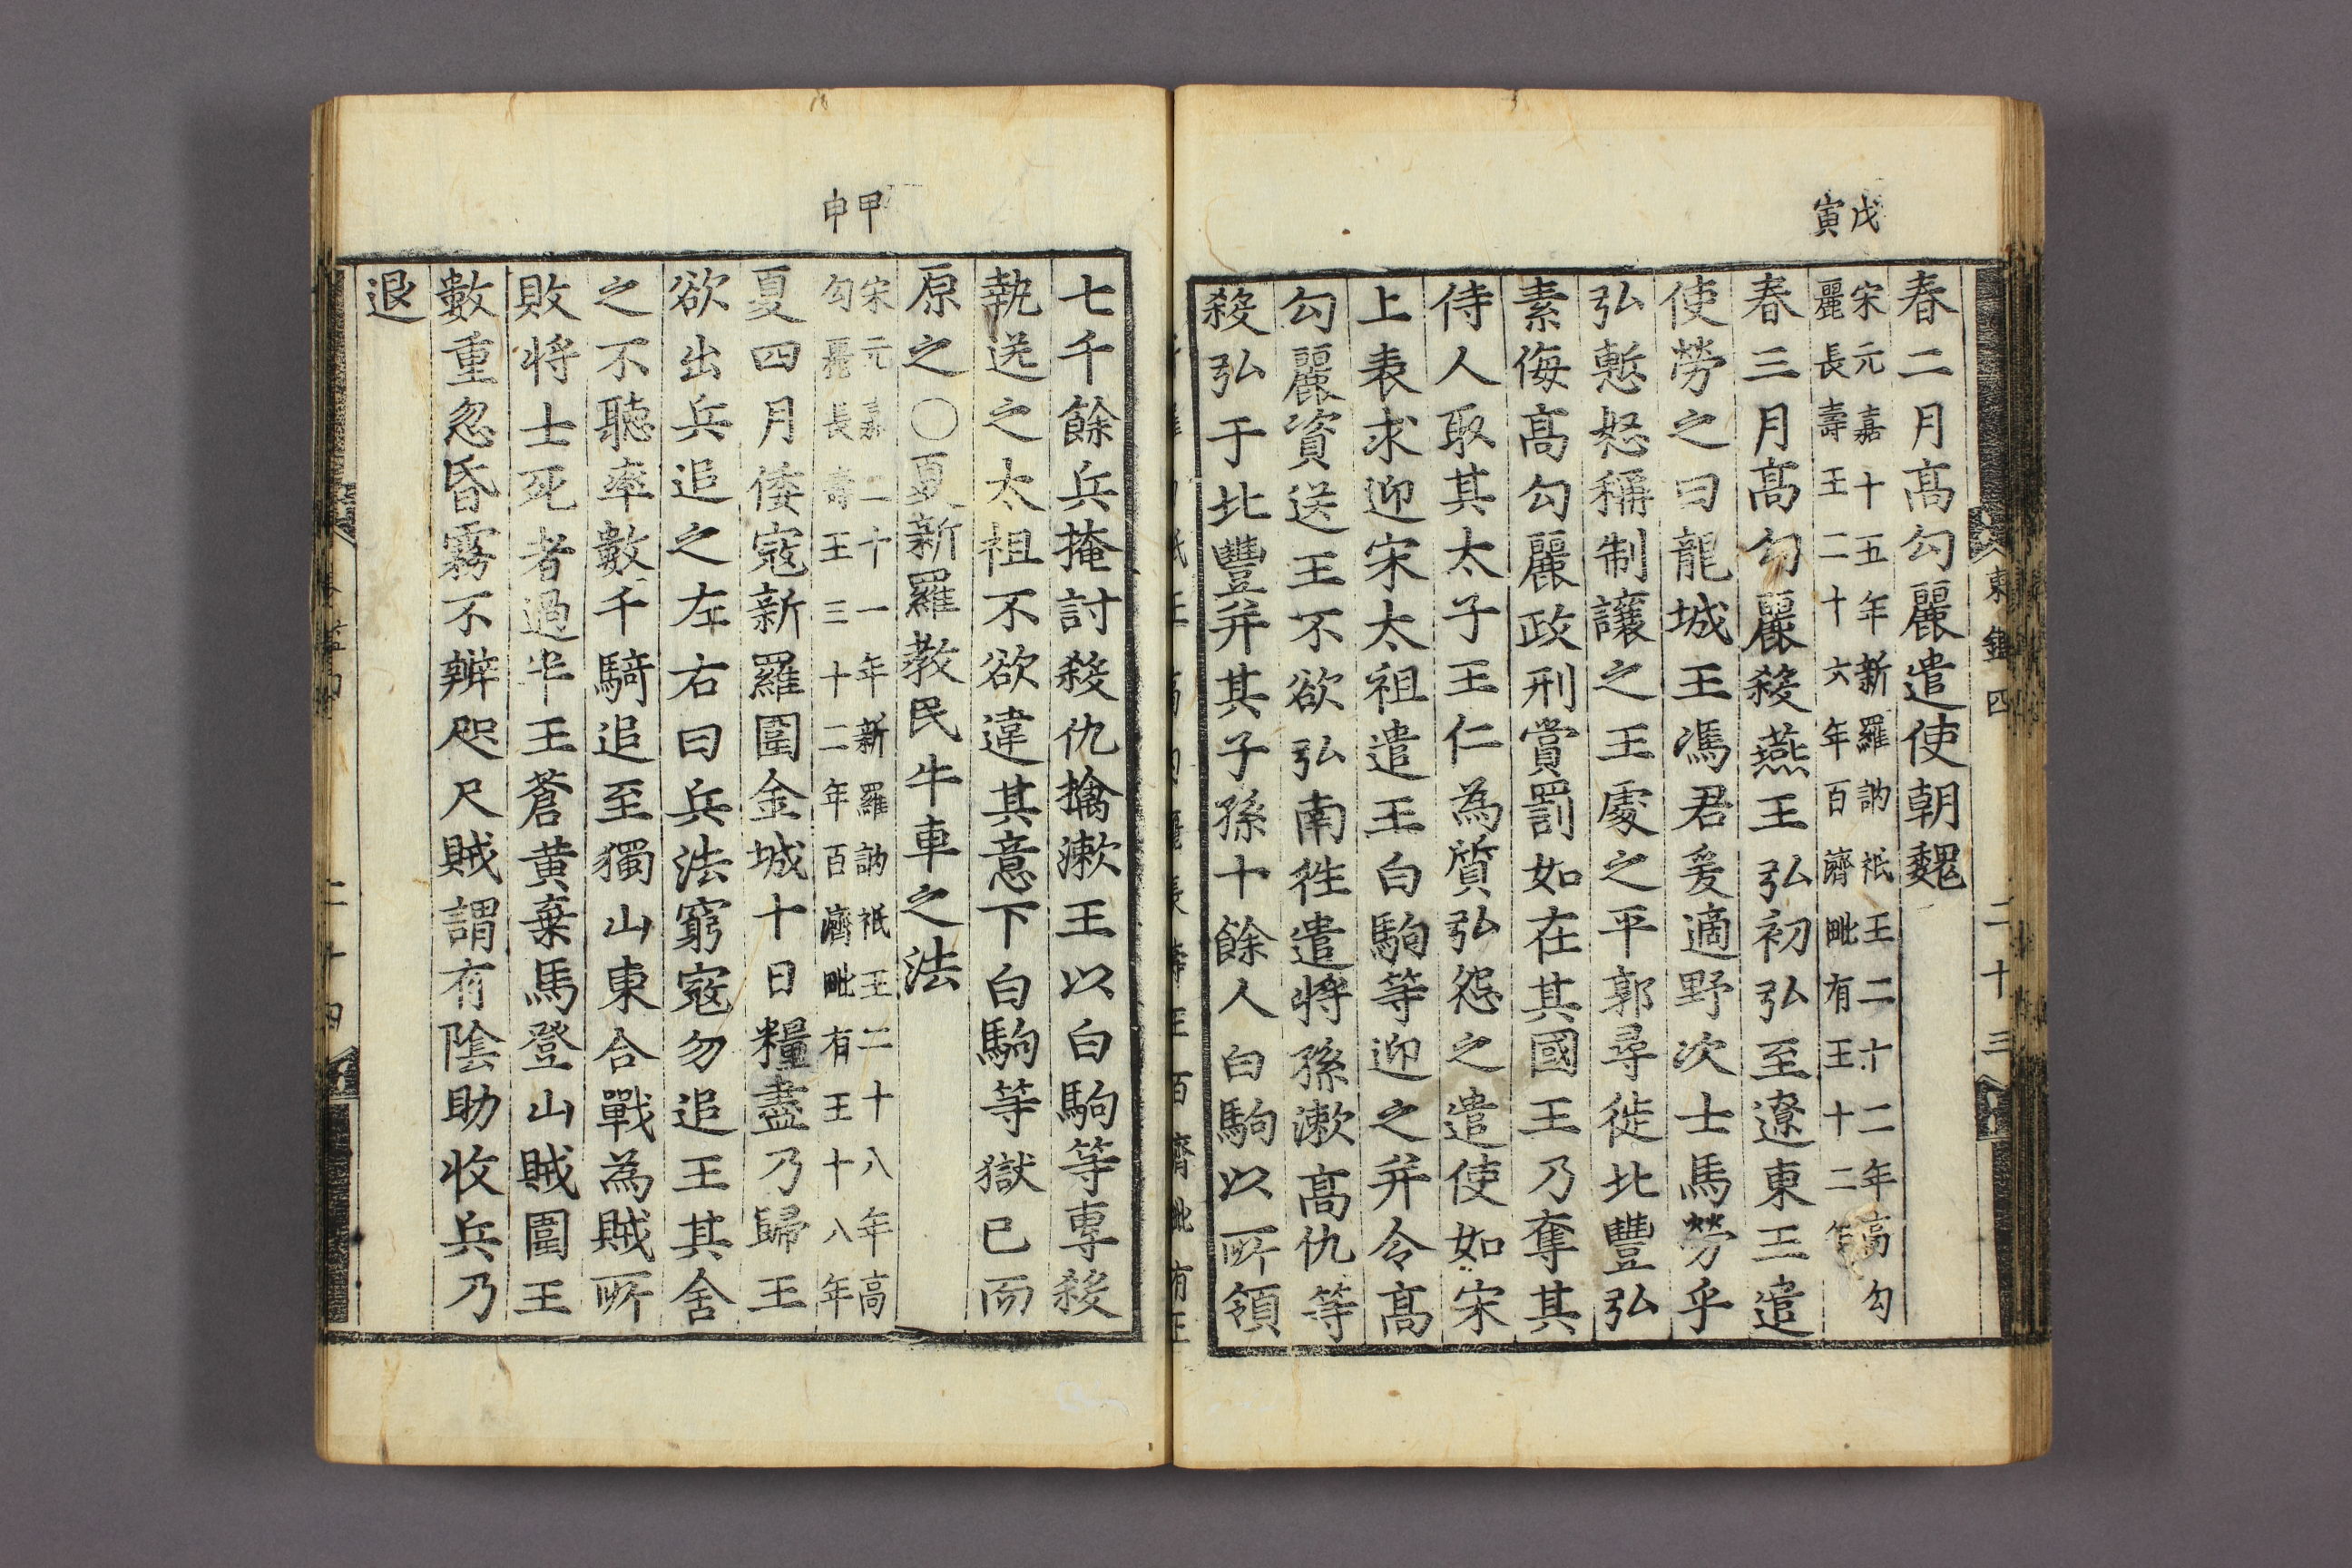 戊寅
春二月高勾麗遣使朝魏
宋元嘉十五年新羅訥祗王二十二年高勾
麗長壽王二十六年百濟毗有王十二年
春三月高勾麗殺燕王弘初弘至遼東王遣
使勞之曰龍城王馮君爰適野次士馬勞乎
弘慙怒稱制讓之王處之平郭尋徙北豐弘
素侮高勾麗政刑賞罰如在其國王乃奪其
侍人取其太子王仁為質弘怨之遣使如宋
上表求迎宋太祖遣王白駒等迎之并令高
勾麗資送王不欲弘南徃遣將孫漱高仇等
殺弘于北豐并其子孫十餘人白駒以所領
東鑑四
二十三
甲申
七千餘兵掩討殺仇擒漱王以白駒等專殺
執送之太祖不欲違其意下白駒等獄已而
原之○夏新羅教民牛車之法
宋元嘉二十一年新羅訥祗王二十八年高
勾麗長壽王三十二年百濟毗有王十八年
夏四月倭寇新羅圍金城十日糧盡乃歸王
欲出兵追之左右曰兵法窮寇勿追王其舍
之不聽率數千騎追至獨山東合戰為賊所
敗将士死者過半王蒼黃棄馬登山賊圍王
數重忽昏霧不辨咫尺賊謂有陰助收兵乃
退
二十四